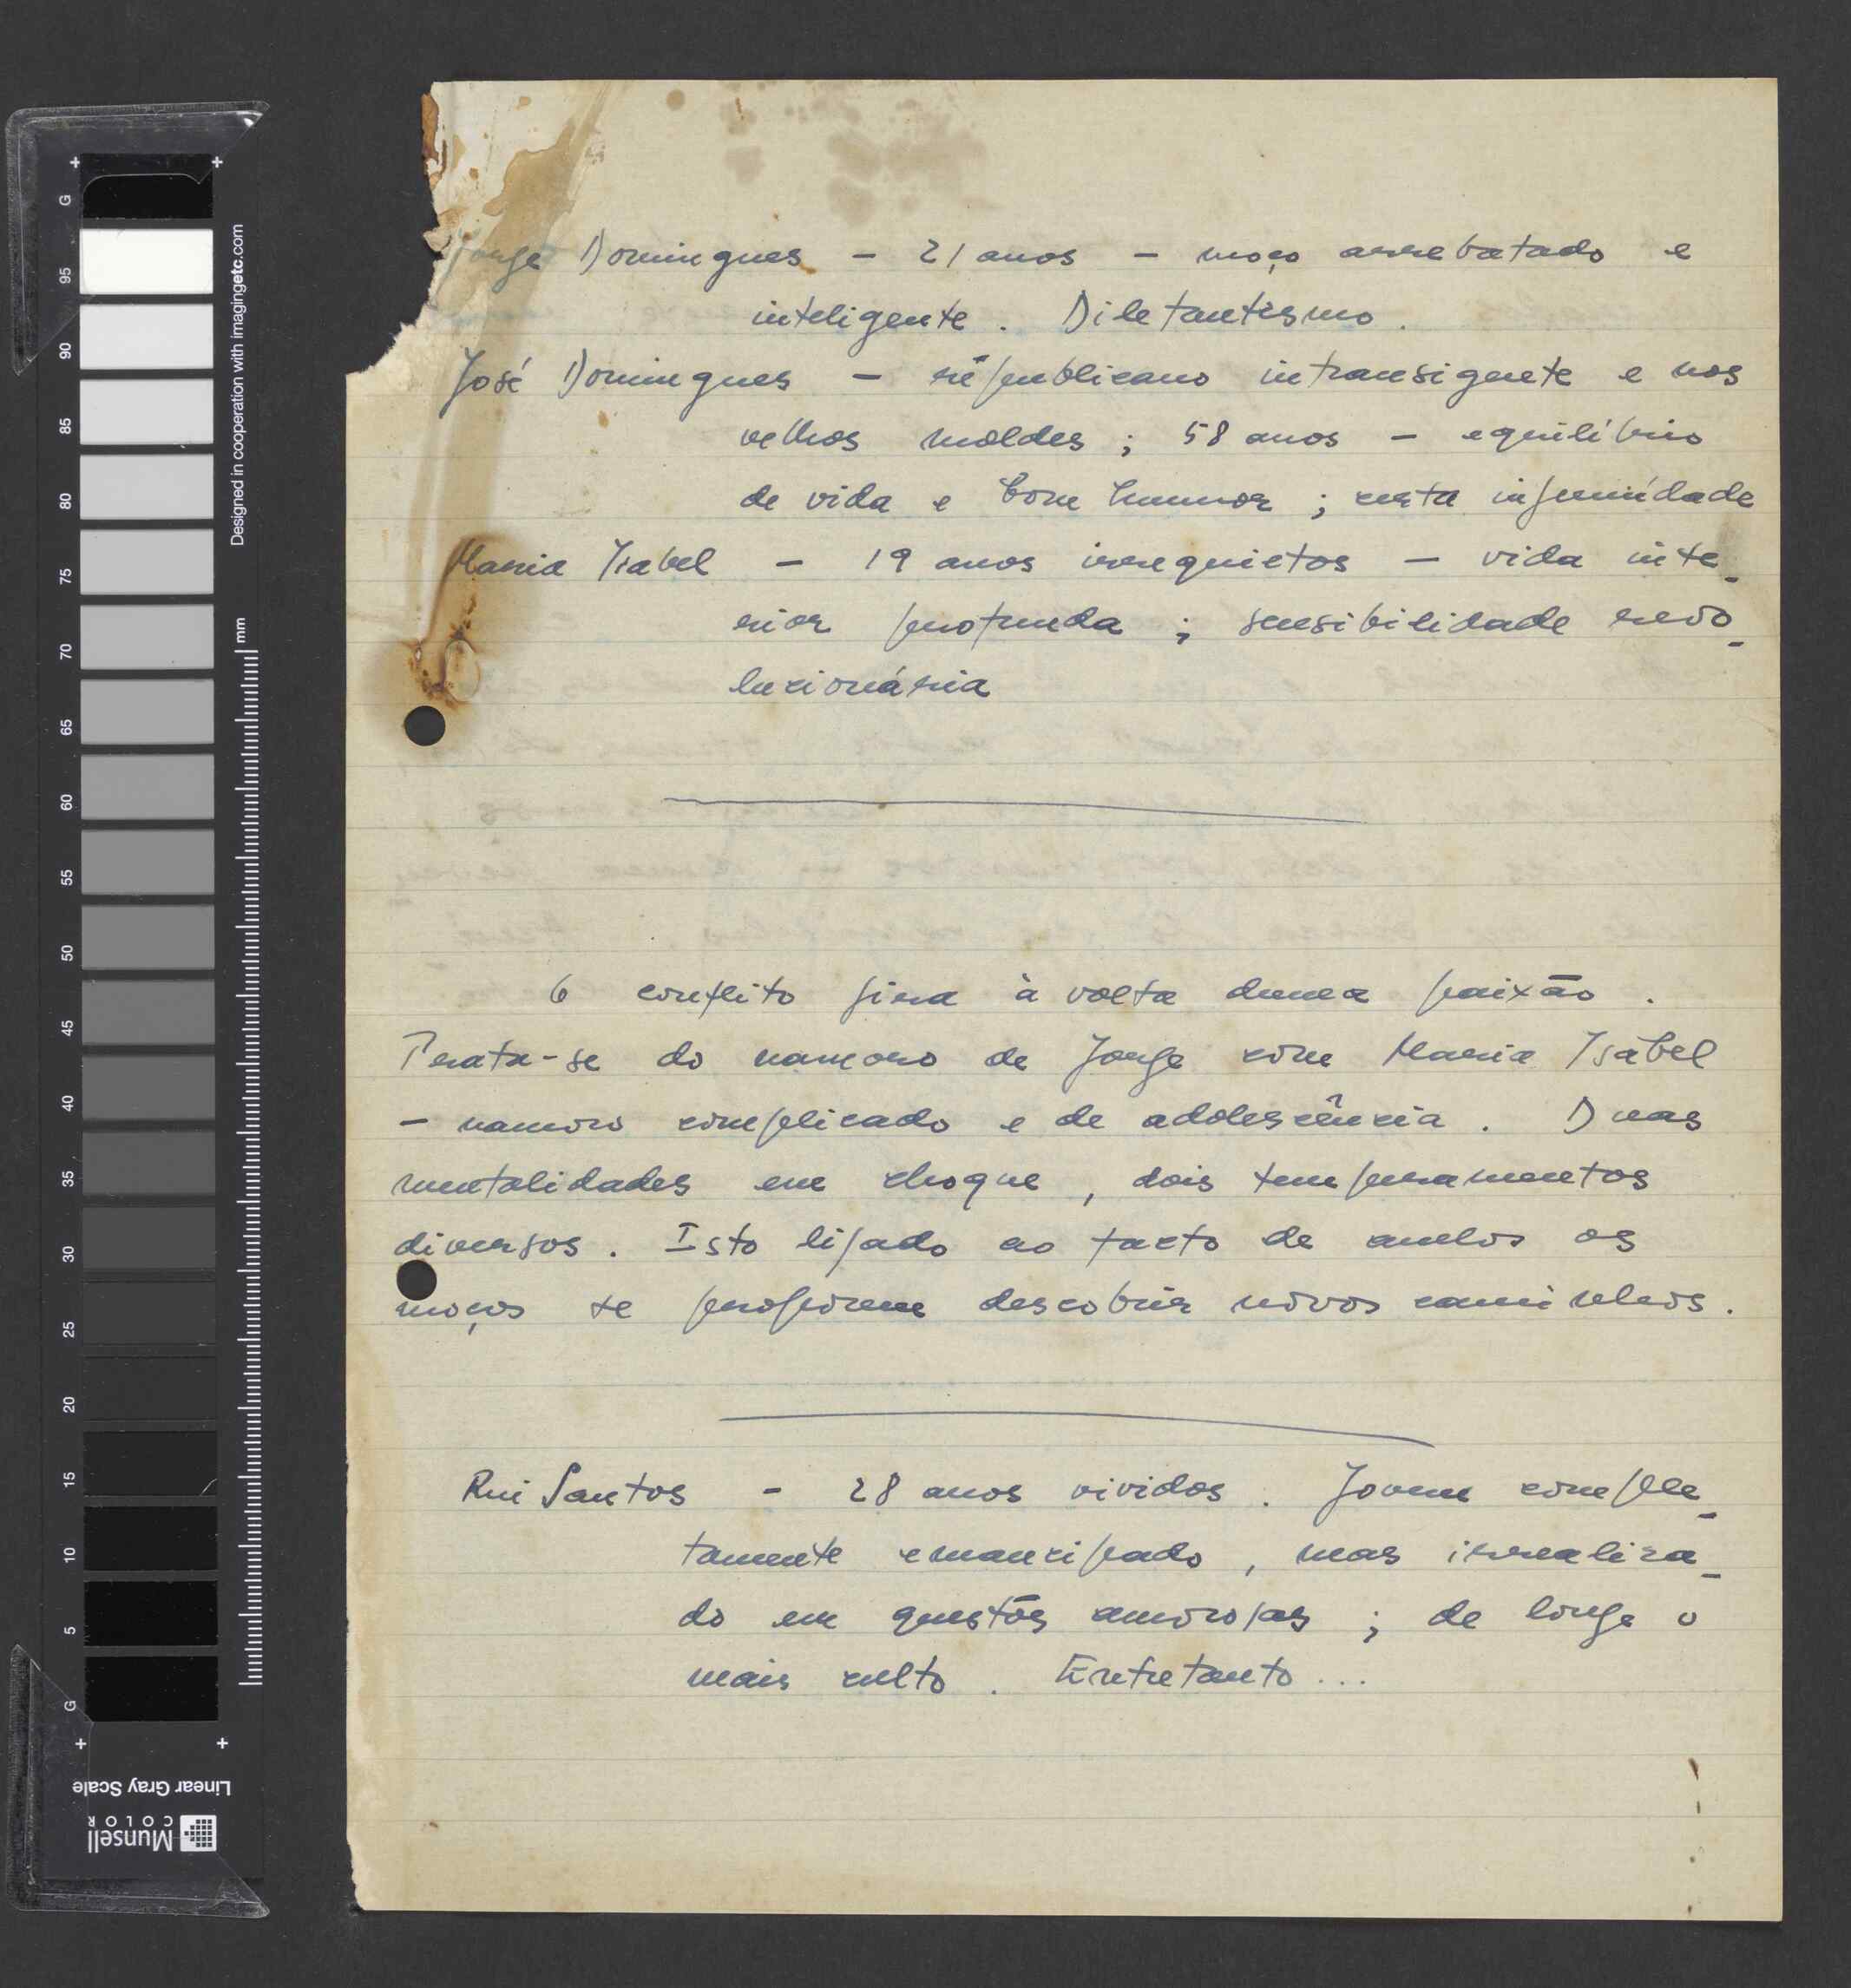 Jorge Domingues – 21 anos – moço arrebatado e
inteligente. Diletantismo.
José Domingues – républicano intransigente e nos
velhos moldes; 58 anos – equilíbrio
de vida e bom humor; certa ingenuidade
Maria Isabel – 19 anos irrequietos – vida inte-
rior profunda; sensibilidade revo-
lucionária
O conflito gira à volta duma paixão.
Trata-se do namoro de Jorge com Maria Isabel
– namoro complicado e de adolescência. Duas
mentalidades em choque, dois temperamentos
diversos. Isto ligado ao facto de ambos os
moços se proporem descobrir novos caminhos.
Rui Santos – 28 anos vividos. Jovem comple-
tamente emancipado, mas irrealiza-
do em questões amorosas; de longe o
mais culto. Entretanto...
G 95 90 85 80 75 70 65 60 55 50 45 40 35 30 25 20 15 10 5 G
Designed in cooperation with imagingetc.com
mm
Linear Gray Scale
Munsell
COLOR